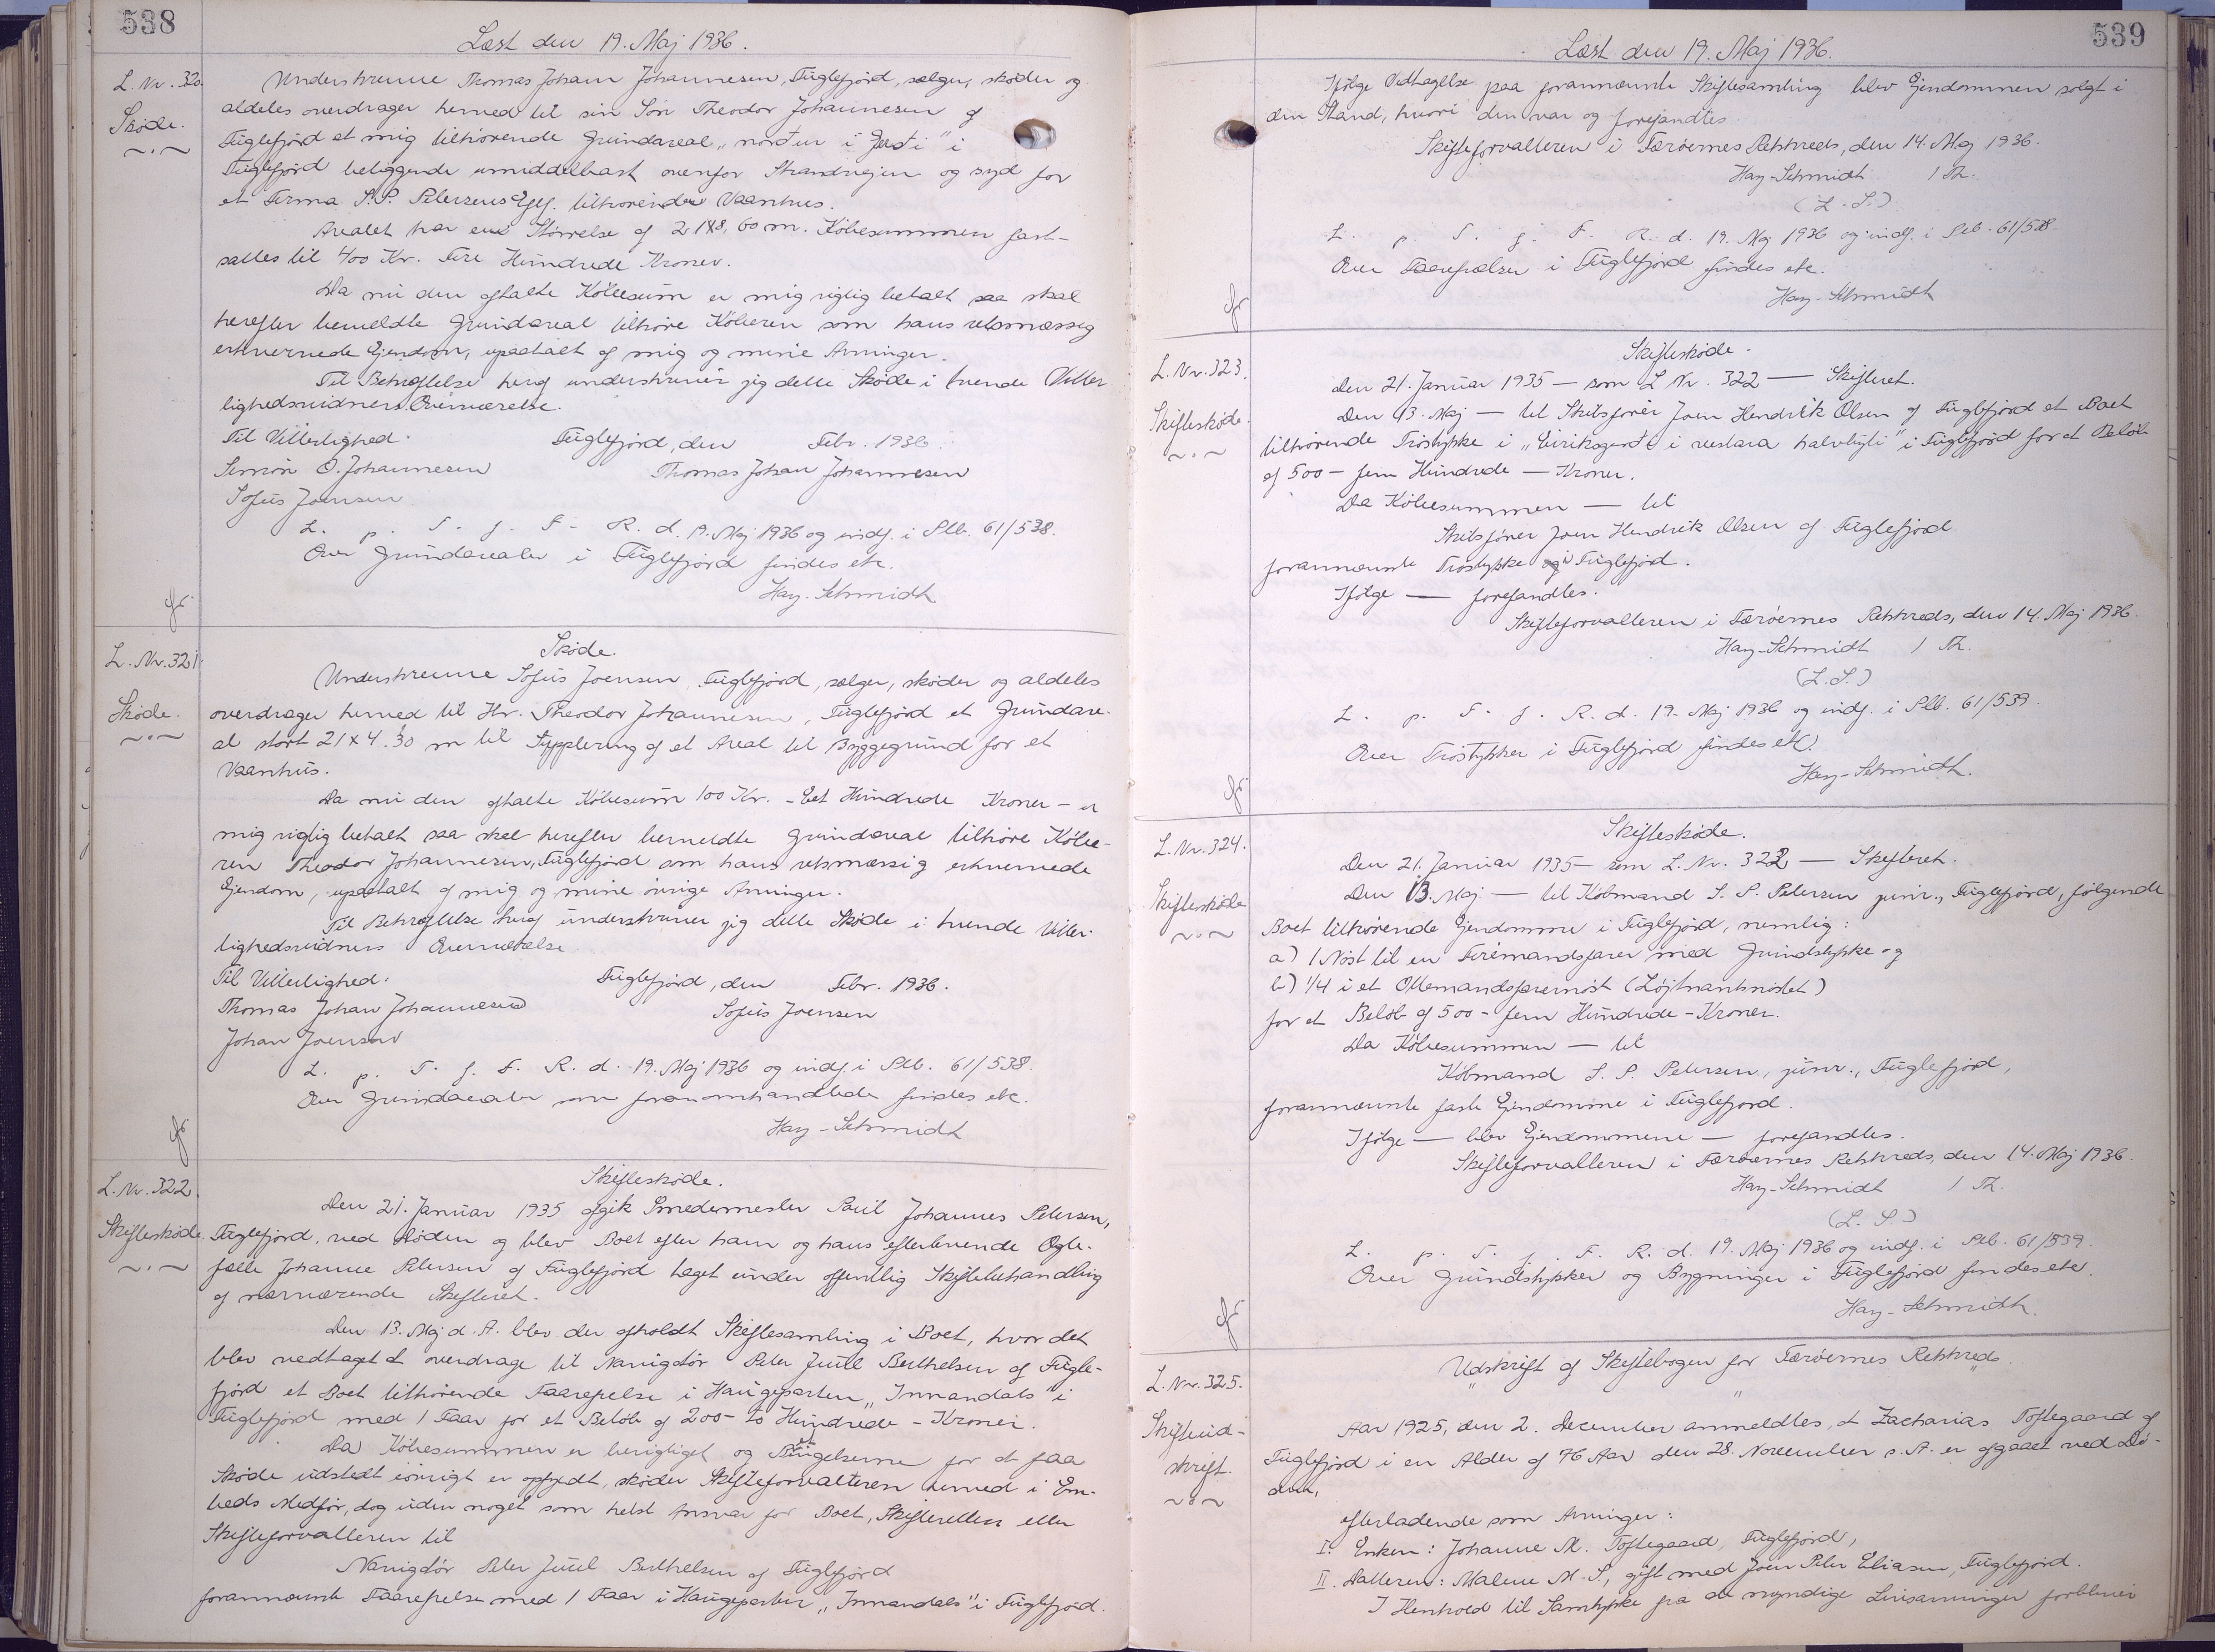 538
Læst den 19. Maj 1936.
L. Nr. 320.
Skøde.
Underskrevne Thomas Johan Johannesen, Fuglefjord, sælger, skøder og
aldeles overdrager herved til sin Søn Theodor Johannesen af
Fuglefjord et mig tilhørende Grundareal „norður i Jasti" i
Fuglefjord beliggende umiddelbart ovenfor Strandvejen og syd for
et Firma S. P. Petersens Eftf. tilhørende Vaanhus.
Arealet har en Størrelse af 21X8,60 m. Købesummen fast-
sættes til 400 Kr. Fire Hundrede Kroner.
Da nu den aftalte Købesum er mig rigtig betalt saa skal
herefter bemeldte Grundareal tilhøre Køberen som hans retsmæssig
erhvervede Ejendom, upaatalt af mig og mine Arvinger.
Til Bekræftelse heraf underskriver jeg dette Skøde i tvende Vitter
lighedsvidners Overværelse.
Til Vitterlighed. Fuglefjord, den Febr. 1936.
Simon O. Johannesen Thomas Johan Johannesen
Sofus Joensen
L. p. T. f. F. R. d. 19. Maj 1936 og indf. i Skb. 61/538.
Over Grundarealer i Fuglefjord findes etc.
Hay-Schmidt
L. Nr. 321.
Skøde.
Skøde.
Underskrevne Sofus Joensen, Fuglefjord, sælger, skøder og aldeles
overdrager herved til Hr. Theodor Johannesen, Fuglefjord et Grundare-
al stort 21x4.30 m til Supplering af et Areal til Byggegrund for et
Vaanhus.
Da nu den aftalte Købesum 100 Kr. - Eet Hundrede Kroner - er
mig rigtig betalt saa skal herefter bemeldte Grundareal tilhøre Købe-
ren Theodor Johannesen, Fuglefjord som hans retsmæssig erhvervede
Ejendom, upaatalt af mig og mine øvrige Arvinger.
Til Bekræftelse heraf underskriver jeg dette Skøde i tvende Vitter-
lighedsvidners Overværelse
Til Vitterlighed. Fuglefjord, den Febr. 1936.
Thomas Johan Johannesen Sofus Joensen
Johan Joensen
L. p. T. f. F. R. d. 19. Maj 1936 og indf. i Skb. 61/538.
Over Grundarealer som foranomhandlede findes etc.
Hay-Schmidt
L. Nr. 322.
Skifteskøde.
Skifteskøde.
Den 21. Januar 1935 afgik Smedemester Poul Johannes Petersen,
Fuglefjord, ved Døden og blev Boet efter ham og hans efterlevende Ægte-
fælle Johanne Petersen af Fuglefjord taget under offentlig Skiftebehandling
af nærværende Skifteret.
Den 13. Maj d. A. blev der afholdt Skiftesamling i Boet, hvor det
blev vedtaget at overdrage til Navigatør Peter Juul Berthelsen af Fugle-
fjord et Boet tilhørende Faarefælse i Haugeparten „Innandals" i
Fuglefjord med 1 Faar for et Beløb af 200 - to Hundrede - Kroner.
Da Købesummen er berigtiget og Betingelserne for at faa
Skøde udstedt iøvrigt er opfyldt, skøder Skifteforvalteren herved i Em-
beds Medfør, dog uden noget som helst Ansvar for Boet, Skifteretten eller
Skifteforvalteren til
Navigatør Peter Juul Berthelsen af Fuglefjord
forannævnte Faarefælse med 1 Faar i Haugeparten „Innandals" i Fuglefjord.
539
Læst den 19. Maj 1936.
Ifølge Vedtagelse paa forannævnte Skiftesamling blev Ejendommen solgt i
den Stand, hvori den var og forefandtes.
Skifteforvalteren i Færøernes Retskreds, den 14. Maj 1936.
Hay-Schmidt 1 Th.
(L. S.)
L. p. T. f. F. R. d. 19. Maj 1936 og indf. i Skb. 61/538.
Over Faarefælser i Fuglefjord findes etc.
Hay-Schmidt
L. Nr. 323.
Skifteskøde.
Skifteskøde.
Den 21. Januar 1935 — som L Nr. 322 — Skifteret.
Den 13. Maj — til Skibsfører Joen Hendrik Olsen af Fuglefjord et Boet
tilhørende Trøstykke i „Eiriksgerði i vestara halvbýti" i Fuglefjord for et Beløb
af 500 - fem Hundrede — Kroner.
Da Købesummen — til
Skibsfører Joen Hendrik Olsen af Fuglefjord
forannævnte Trøstykke i Fuglefjord.
Ifølge — forefandtes.
Skifteforvalteren i Færøernes Retskreds, den 14. Maj 1936.
Hay-Schmidt 1 Th.
(L.S.)
L. p. T. f. R. d. 19. Maj 1936 og indf. i Skb. 61/539.
Over Trøstykker i Fuglefjord findes etc.
Hay-Schmidt.
L. Nr. 324.
Skifteskøde
Skifteskøde.
Den 21. Januar 1935 — som L. Nr. 322 — Skifteret.
Den 13. Maj — til Købmand S. P. Petersen junr., Fuglefjord, følgende
Boet tilhørende Ejendomme i Fuglefjord, nemlig:
a) 1 Nøst til en Firemandsfarer med Grundstykke og
b) 1/4 i et Ottemandsfarernøst (Løjtnantsnøstet)
for et Beløb af 500 - fem Hundrede - Kroner.
Da Købesummen — til
Købmand S. P. Petersen, junr., Fuglefjord,
forannævnte faste Ejendomme i Fuglefjord.
Ifølge — blev Ejendommene — forefandtes.
Skifteforvalteren i Færøernes Retskreds, den 14. Maj 1936.
Hay-Schmidt 1 Th.
(L. S.)
L. p. T. f. F. R. d. 19. Maj 1936 og indf. i Skb. 61/539.
Over Grundstykker og Bygninger i Fuglefjord findes etc.
Hay-Schmidt.
L. Nr. 325.
Skifteud-
skrift.
Udskrift af Skiftebogen for Færøernes Retskreds.
Aar 1925, den 2. December anmeldtes, at Zacharias Toftegaard af
Fuglefjord i en Alder af 76 Aar den 28. November s. A. er afgaaet ved Dø-
den,
efterladende som Arvinger:
I. Enken: Johanne M. Toftegaard, Fuglefjord,
II. Datteren: Malene M. S., gift med Joen Peter Eliasen, Fuglefjord.
I Henhold til Samtykke fra de myndige Livsarvinger forbliver